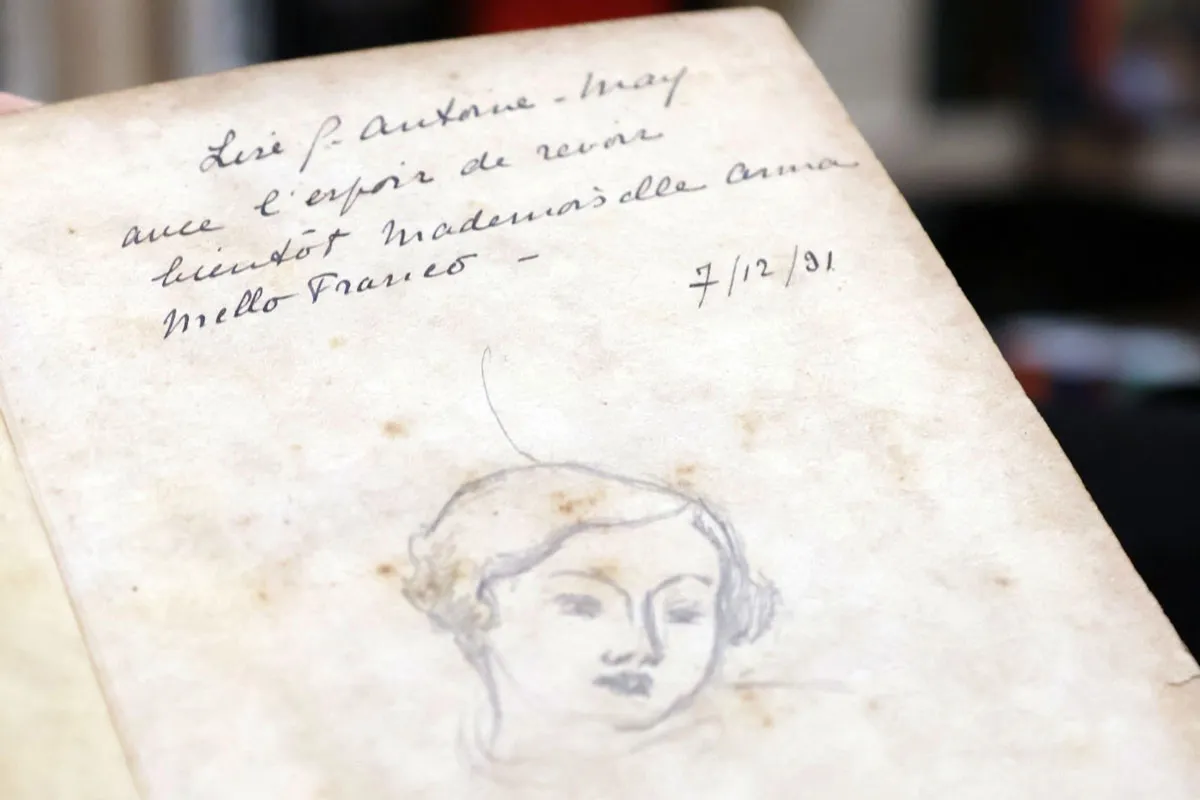 Lise P. Antoine-May
avec l'espoir de revoir
bientôt Mademoiselle Anna
Mello Franco -
7/12/91